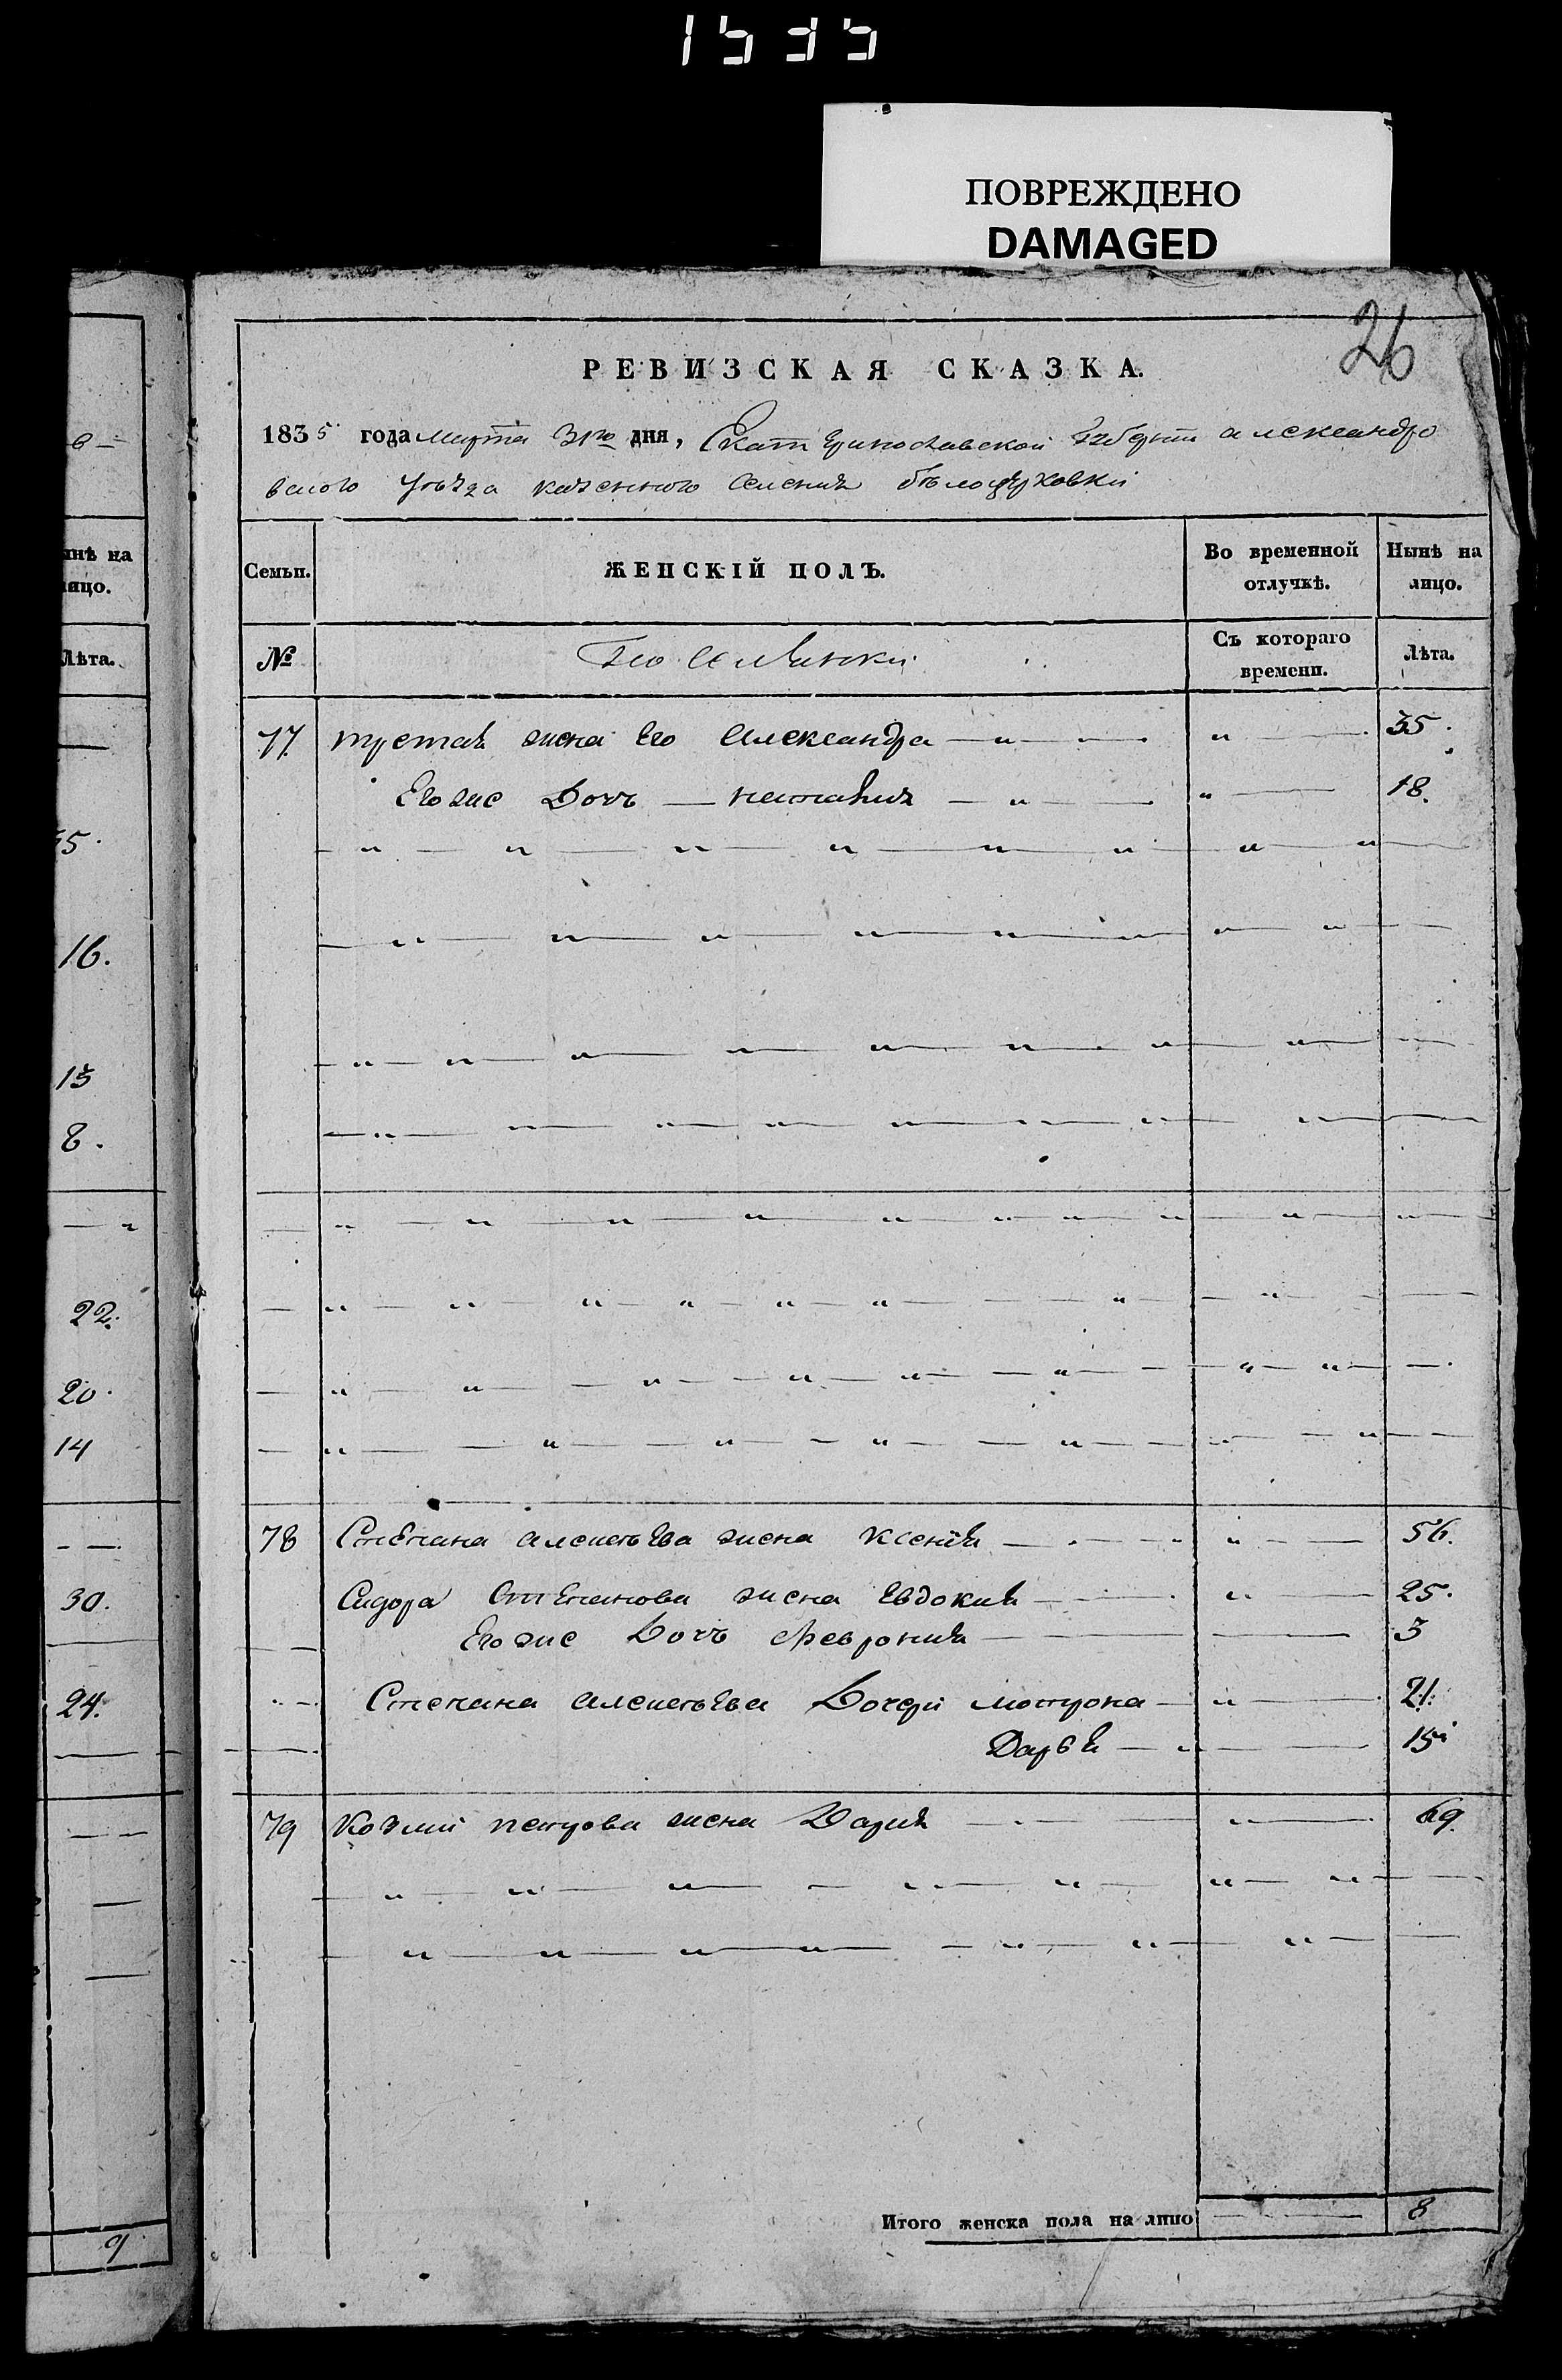 1535
ПОВРЕЖДЕНО
DAMAGED
26
РЕВИЗСКАЯ СКАЗКА.
1835 года марта 31го дня, Екатеринославской Губерніи александро
вского уѣзда казенного Селенія бѣлоцерковки
Семьи. ЖЕНСКІЙ ПОЛЪ. Во временной отлучкѣ. Нынѣ на лицо.
№ Поселянки Съ котораго времени. Лѣта.
77 третая жена Его Александра — „ — „ — 35.
Егоже Дочь — наталия — „ — „ — 18.
78 Степана алексѣева жена ксения — „ — 56.
Сидора Степанова жена Евдокия — „ — 25.
Егоже Дочь Феврония — 3
Степана алексѣева Дочери мотрона — „ — 21.
Дарья — „ — 15
79 Козми петрова жена Дария — „ — 69.
Итого женска пола на лицо — 8
нѣ на
лицо.
Лѣта.
5.
16.
13
8.
22.
20.
14
30.
24.
9